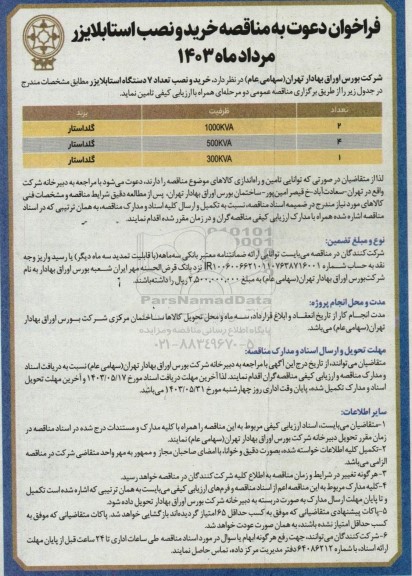 فراخوان دعوت به مناقصه خرید و نصب استابلایزر
مرداد ماه ۱۴۰۳
شرکت بورس اوراق بهادار تهران (سهامی عام) در نظر دارد، خرید و نصب تعداد ۷ دستگاه استابلایزر مطابق مشخصات مندرج
در جدول زیر را از طریق برگزاری مناقصه عمومی دو مرحله‌ای همراه با ارزیابی کیفی تامین نماید.
تعداد ظرفیت برند
۲ 1000KVA گلداستار
۴ 500KVA گلداستار
۱ 300KVA گلداستار
لذا از متقاضیان در صورتی که توانایی تامین و راه‌اندازی کالاهای موضوع مناقصه را دارند، دعوت می‌شود با مراجعه به دبیرخانه شرکت
واقع در تهران-سعادت‌آباد-خ قیصر امین‌پور-ساختمان بورس اوراق بهادار تهران، پس از مطالعه دقیق شرایط مناقصه و مشخصات فنی
کالاهای مورد نیاز مندرج در ضمیمه اسناد مناقصه، نسبت به تکمیل و ارسال کلیه اسناد و مدارک مناقصه، به همان ترتیبی که در اسناد
مناقصه اشاره شده همراه با مدارک ارزیابی کیفی مناقصه گران و در زمان مقرر شده اقدام نمایند.
نوع و مبلغ تضمین:
شرکت کنندگان در مناقصه می‌بایست توانایی ارائه ضمانتنامه معتبر بانکی سه‌ماهه (با قابلیت تمدید سه ماه دیگر) یا رسید واریز وجه
نقد به حساب شماره نزد بانک قرض‌الحسنه مهر ایران شعبه بورس اوراق بهادار به نام
شرکت بورس اوراق بهادار تهران (سهامی عام) به مبلغ ۲٬۵۰۰٬۰۰۰٬۰۰۰ ریال را داشته باشند.
مدت و محل انجام پروژه:
مدت انجام کار از تاریخ انعقاد و ابلاغ قرارداد، سه ماه و محل تحویل کالاها ساختمان مرکزی شرکت بورس اوراق بهادار
تهران (سهامی عام) می‌باشد.
مهلت تحویل و ارسال اسناد و مدارک مناقصه:
متقاضیان می‌توانند، از تاریخ درج این آگهی با مراجعه به دبیرخانه شرکت بورس اوراق بهادار تهران (سهامی عام) نسبت به دریافت اسناد
و مدارک مناقصه و ارزیابی کیفی مناقصه‌گران اقدام نمایند. لذا آخرین مهلت دریافت اسناد مورخ ۱۴۰۳/۰۵/۱۷ و آخرین مهلت تحویل
اسناد و مدارک تکمیل شده، پایان وقت اداری روز چهارشنبه مورخ ۱۴۰۳/۰۵/۳۱ می‌باشد.
سایر اطلاعات:
۱-متقاضیان می‌بایست، اسناد ارزیابی کیفی مربوط به این مناقصه را همراه با کلیه مدارک و مستندات درج شده در اسناد مناقصه در
زمان مقرر تحویل دبیرخانه شرکت بورس اوراق بهادار تهران (سهامی عام) نمایند.
۲-تکمیل کلیه اطلاعات خواسته شده، بصورت دقیق و خوانا، با امضای صاحبان مجاز و ممهور به مهر واحد متقاضی شرکت در مناقصه
الزامی می‌باشد.
۳-هرگونه تغییر در شرایط و زمان مناقصه به اطلاع کلیه شرکت کنندگان در مناقصه خواهد رسید.
۴-کلیه مدارک مربوط به این مناقصه اعم از اسناد مناقصه و فرم‌های ارزیابی کیفی می‌بایست به همان ترتیبی که اشاره شده است تکمیل
و تا پایان مهلت ارسال مدارک به صورت دربسته به دبیرخانه شرکت بورس اوراق بهادار تحویل داده شود.
۵-پاکات پیشنهادی متقاضیانی که موفق به کسب حداقل ۶۵ امتیاز گردیده‌اند باز گشایی خواهد شد. پاکات متقاضیانی که موفق به
کسب حداقل امتیاز نشده باشند، به همان صورت عودت خواهد شد.
۶-شرکت کنندگان می‌توانند، جهت رفع هرگونه ابهام یا سوال در مورد اسناد مناقصه طی ساعات اداری تا ۲۴ ساعت قبل از پایان مهلت
ارائه اسناد، با شماره ۶۴۰۸۶۲۱۲ دفتر مدیریت مرکز داده، تماس حاصل نمایند.
ParsNamadData
پایگاه اطلاع رسانی مناقصه و مزایده
۰۲۱-۸۸۳۴۹۶۷۰-۵